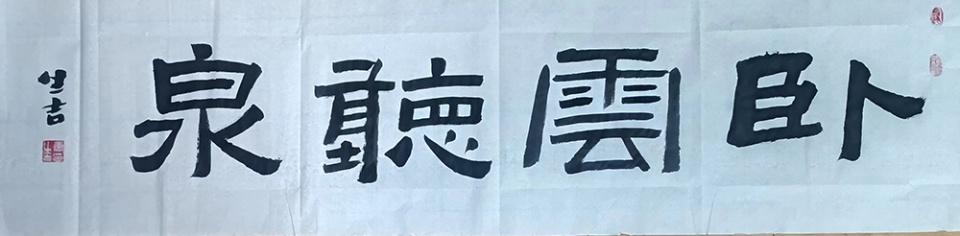 卧雲聽泉
生吉